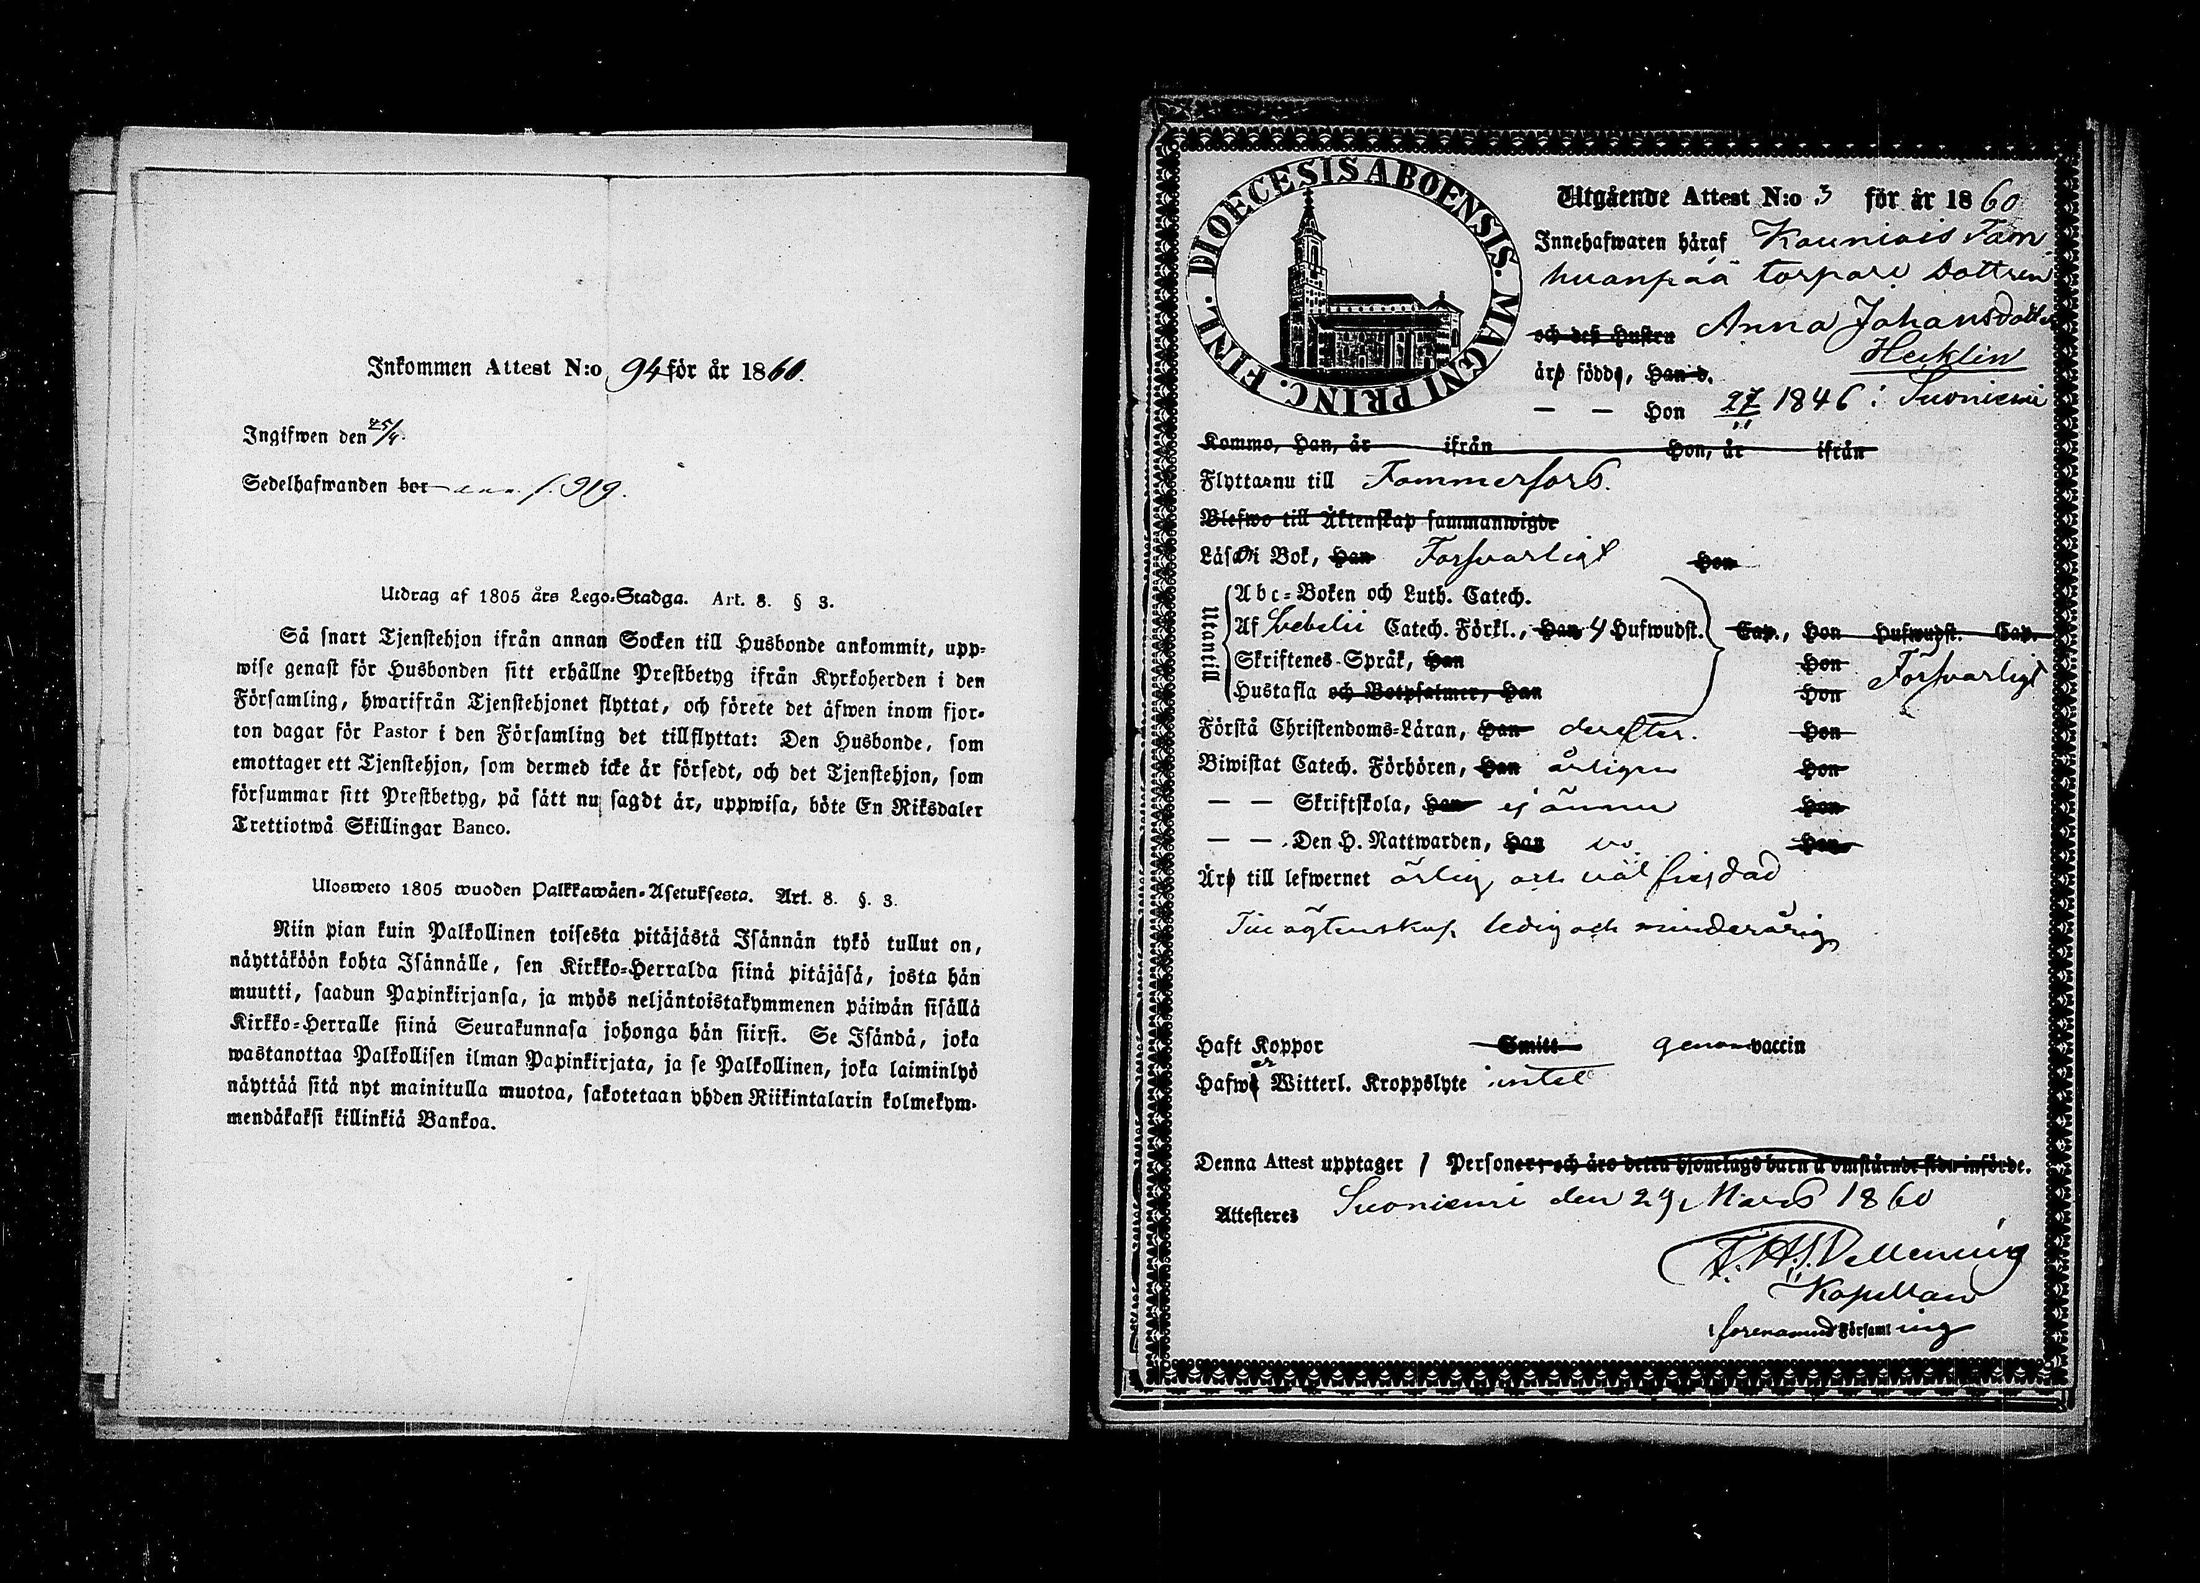 Inkommen Attest N:o 94 för år 1860.
Ingifwen den 25/4.
Sedelhafwanden bor ann. f. 919.
Utdrag af 1805 års Lego-Stadga. Art. 8. § 3.
Så snart Tjenstehjon ifrån annan Socken till Husbonde ankommit, upp-
wise genast för Husbonden sitt erhållne Prestbetyg ifrån Kyrkoherden i den
Församling, hwarifrån Tjenstehjonet flyttat, och förete det äfwen inom fjor-
ton dagar för Pastor i den Församling det tillflyttat: Den Husbonde, som
emottager ett Tjenstehjon, som dermed icke är försedt, och det Tjenstehjon, som
försummar sitt Prestbetyg, på sätt nu sagdt är, uppwisa, böte En Riksdaler
Trettiotwå Skillingar Banco.
Ulosweto 1805 wuoden Palkkawäen-Asetuksesta. Art. 8. §. 3.
Niin pian kuin Palkollinen toisesta pitäjästä Isännän tykö tullut on,
näyttäköön kohta Isännälle, sen Kirkko-Herralda siinä pitäjäsä, josta hän
muutti, saadun Papinkirjansa, ja myös neljäntoistakymmenen päiwän sisällä
Kirkko-Herralle siinä Seurakunnasa johonga hän siirsi. Se Isändä, joka
wastanottaa Palkollisen ilman Papinkirjata, ja se Palkollinen, joka laiminlyö
näyttää sitä nyt mainitulla muotoa, sakotetaan yhden Riikintalarin kolmekym-
mendäkaksi killinkiä Bankoa.
DIOECESIS ABOENSIS. MAGNI PRINC. FINL.
Utgående Attest N:o 3 för år 1860
Innehafwaren häraf Kauniais Tam
huanpää torpare Dottren
och deß Hustru Anna Johansdotter
Heiklin
äro födde, Han d.
— — Hon 27/11 1846 i Suoniemi
Kommo, Han, år ifrån Hon, år ifrån
Flyttar nu till Tammerfors.
Blefwo till Äktenskap sammanwigde
Läser i Bok, Han Försvarligt Hon
Utantill
Abc-Boken och Luth. Catech.
Af Svebelii Catech. Förkl., Han 4 Hufwudst. Cap., Hon Hufwudst. Cap.
Skriftenes Språk, Han Hon Försvarligt
Hustafla och Botpsalmer, Han Hon
Förstå Christendoms-Läran, Han derefter. Hon
Biwistat Catech. Förhören, Han årligen Hon
— — Skriftskola, Han ej ännu Hon
— — Den H. Nattwarden, Han Hon
Äro till lefwernet ärlig och väl frejdad
Till ägtenskap ledig och minderårig
Haft Koppor Smitt genom vaccin
Hafwer Witterl. Kroppslyte intet
Denna Attest upptager 1 Personer, och äro detta hjonelags barn å omstående sida införde.
Attesteres Suoniemi den 29 Mars 1860
Kapellan
i förenämnd Församling